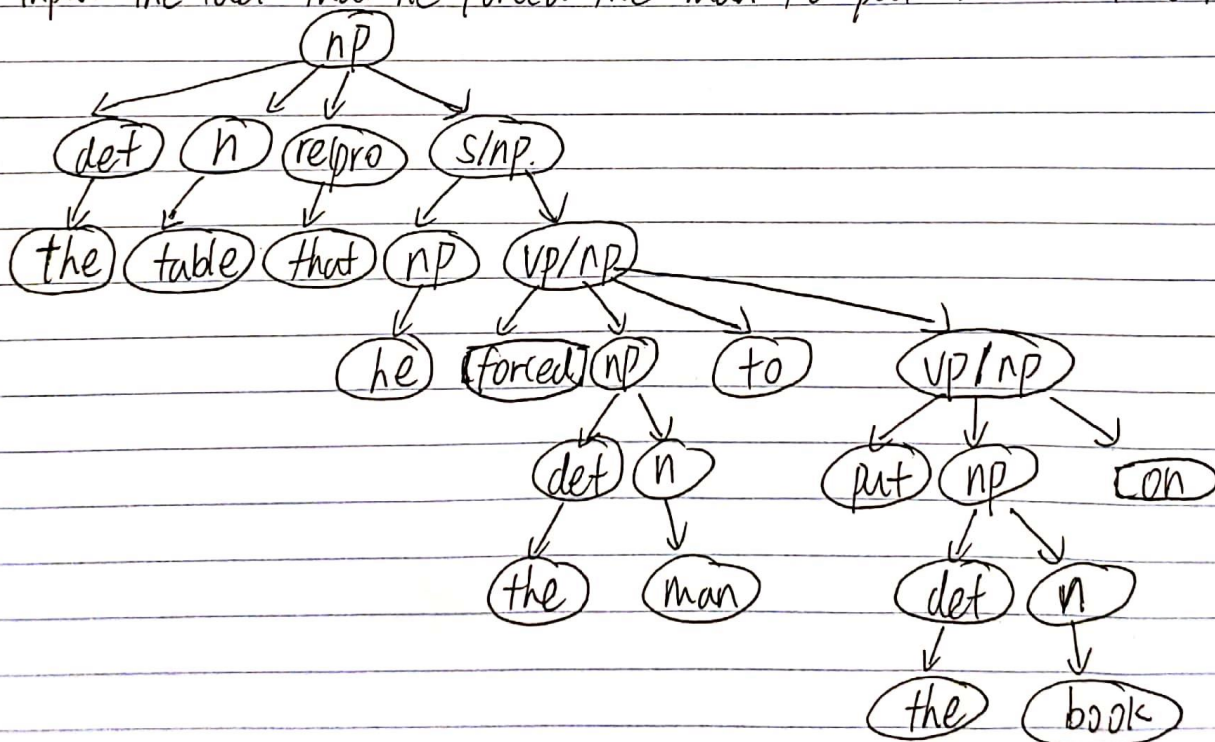 np
det n relpro s/np.
the table that np vp/np
he forced np to vp/np
det n put np on
the man det n
the book